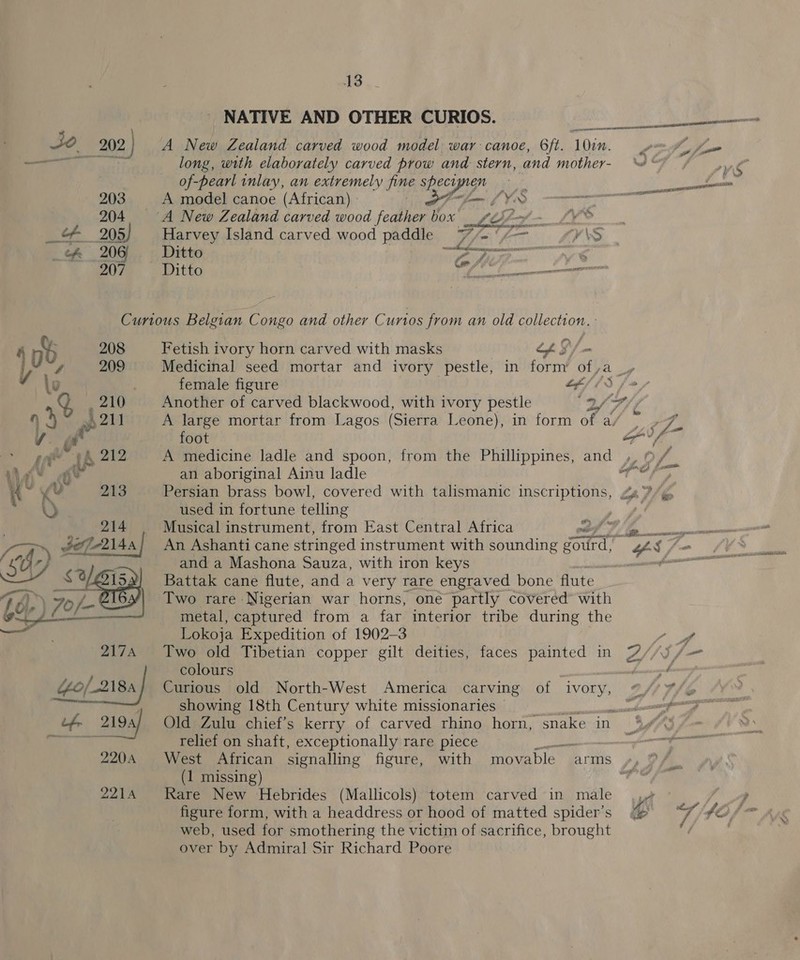 13
NATIVE AND OTHER CURIOS.
30 202 A New Zealand carved wood model war canoe, 6ft. 10in.
long, with elaborately carved prow and stern, and mother-
of-pearl inlay, an extremely fine specimen
203 A model canoe (African)
204 A New Zealand carved wood feather box
205 Harvey Island carved wood paddle
206 Ditto
207 Ditto
Curious Belgian Congo and other Curios from an old collection.
208 Fetish ivory horn carved with masks
209 Medicinal seed mortar and ivory pestle, in form of a
female figure
210 Another of carved blackwood, with ivory pestle
211 A large mortar from Lagos (Sierra Leone), in form of a
foot
212 A medicine ladle and spoon, from the Phillippines, and
an aboriginal Ainu ladle
213 Persian brass bowl, covered with talismanic inscriptions,
used in fortune telling
214 Musical instrument, from East Central Africa
214A An Ashanti cane stringed instrument with sounding gourd,
and a Mashona Sauza, with iron keys
215A Battak cane flute, and a very rare engraved bone flute
70/- 216A Two rare Nigerian war horns, one partly covered with
metal, captured from a far interior tribe during the
Lokoja Expedition of 1902-3
217A Two old Tibetian copper gilt deities, faces painted in
colours
218A Curious old North-West America carving of ivory,
showing 18th Century white missionaries
219A Old Zulu chief's kerry of carved rhino horn, snake in
relief on shaft, exceptionally rare piece
220A West African signalling figure, with movable arms
(1 missing)
221A Rare New Hebrides (Mallicols) totem carved in male
figure form, with a headdress or hood of matted spider's
web, used for smothering the victim of sacrifice, brought
over by Admiral Sir Richard Poore